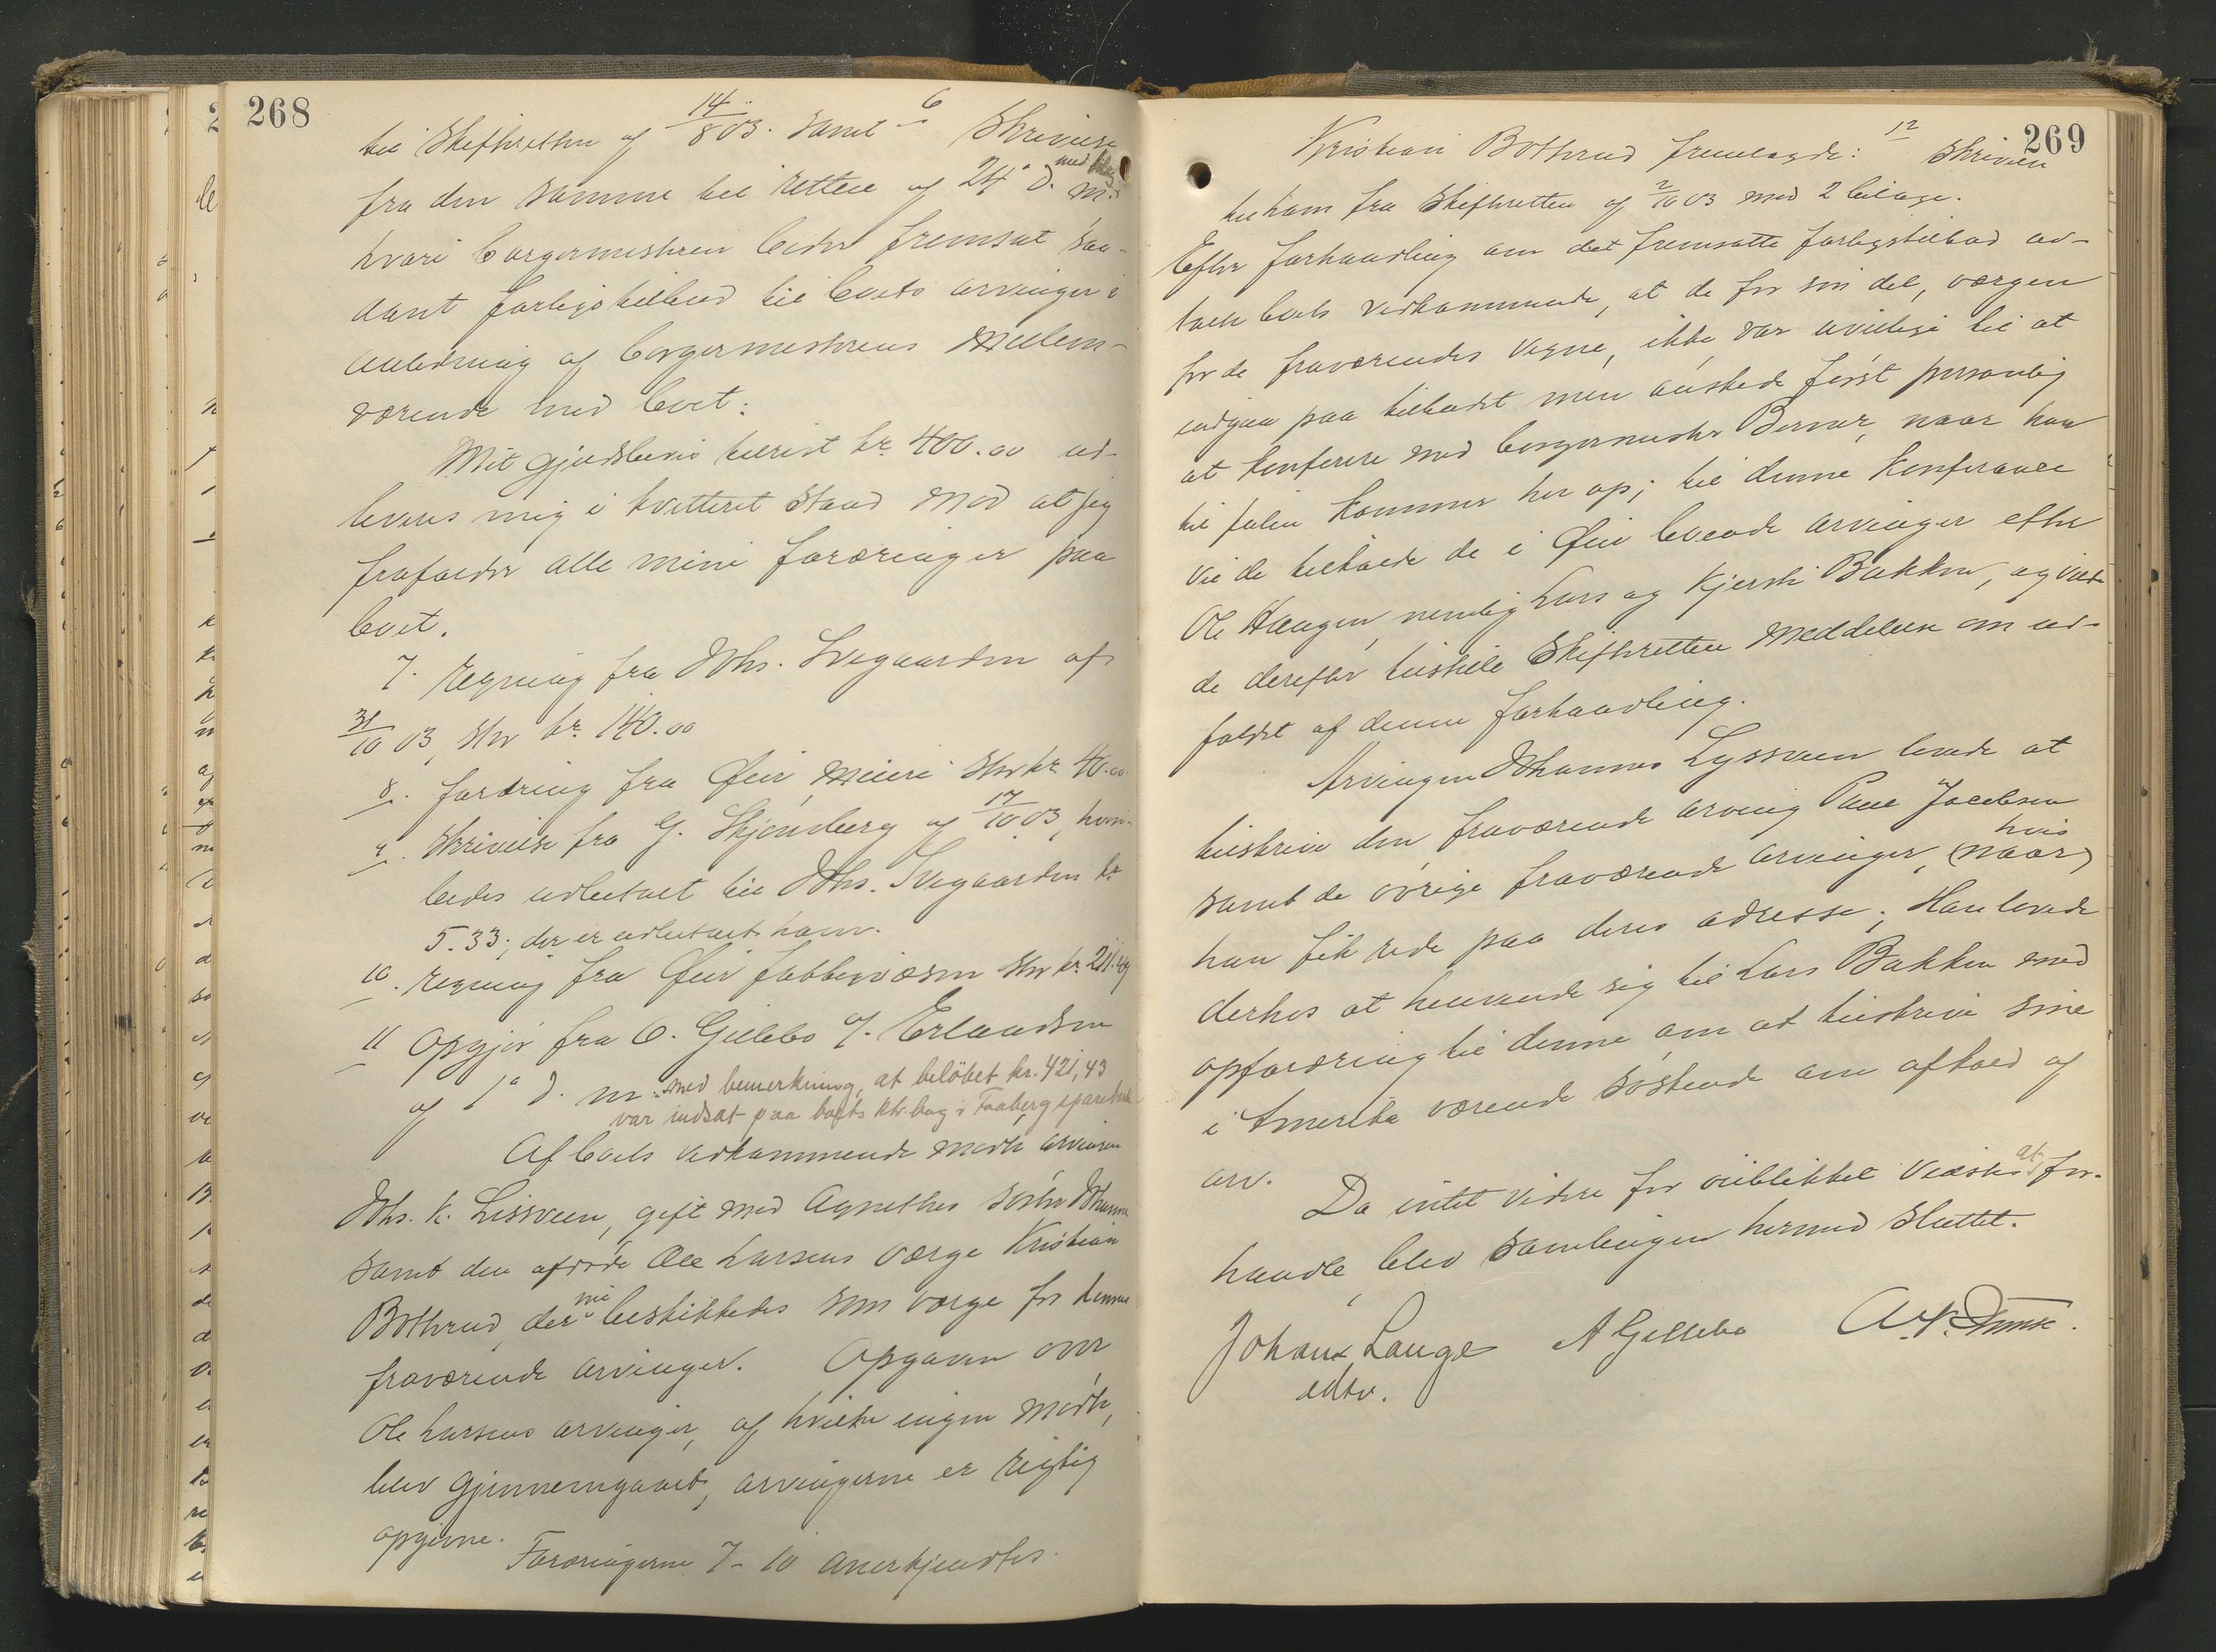 268
til Skifteretten af 14/8 03. samt 6 Skrivelse
fra den samme til retten af 24' d. m. med bilag
hvori borgermesteren beder fremsat saa-
dant forligstilbud til boets arvinger i
anledning af borgermesterens Mellem-
værende med boet:
Mit gjældsbevis tilrest kr. 400.00 ud-
leveres mig i kvitteret Stand mod at jeg
frafalder alle mine fordringer paa
boet.
7. regning fra Johs. Svegaarden af
31/10 03, stor kr. 140.00
8. fordring fra Øier Meieri stor kr. 40.00
9. skrivelse fra G. Skjønsberg af 17/10 03, hvori
bedes udbetalt til Johs. Svegaarden kr
5.33; der er udbetalt ham.
10. regning fra Øier fattigvæsen stor kr. 211.49
11 Opgjør fra O. Gillebo & Erlandsen
af 1' d. m. med bemerkning, at beløbet kr. 421,43
var indsat paa boets ktr.bog i Faaberg sparebank
Af boets vedkommende mødte arvingen
Johs. K. Lissveen, gift med Agnethes søster Johanne
samt den afdøde Ole Larsens værge Kristian
Bothrud, der nu beskikkedes som værge for denne
fraværende arvinger. Opgaven over
Ole Larsens arvinger, af hvilke ingen mødte,
blev gjennemgaaet, arvingerne er rigtig
opgivne.
Fordringerne 7-10 anerkjendtes.
269
Kristian Bothrud fremlagde: 12 Skrivelse
til ham fra Skifteretten af 2/10 03 med 2 bilage.
Efter forhandling om det fremsatte forligstilbud ud-
talte boets vedkommende, at de for sin del, værgen
for de fraværendes vegne, ikke var uvillige til at
indgaa paa tilbudet men ønskede først personlig
at konferere med borgermester Berner, naar han
til julen kommer her op; til denne konferance
vil de tilkalde de i Øier boende arvinger efter
Ole Haugen, nemlig Lars og Kjersti Bakken, og vilde
de derefter tilstille Skifteretten Meddelelse om ud-
faldet af denne forhandling.
Arvingen Johannes Lyssveen lovede at
tilskrive den fraværende arving Paul Jacobsen
samt de øvrige fraværende arvinger, (naar) hvis
han fik rede paa deres adresse; Han lovede
derhos at henvende sig til Lars Bakken med
opfordring til denne om at tilskrive sine
i Amerika værende søskende om afkald af
arv.
Da intet videre for øieblikket vidstes at for-
handle, blev samlingen hermed sluttet.
Johans Lange A Gillebo
edsv.